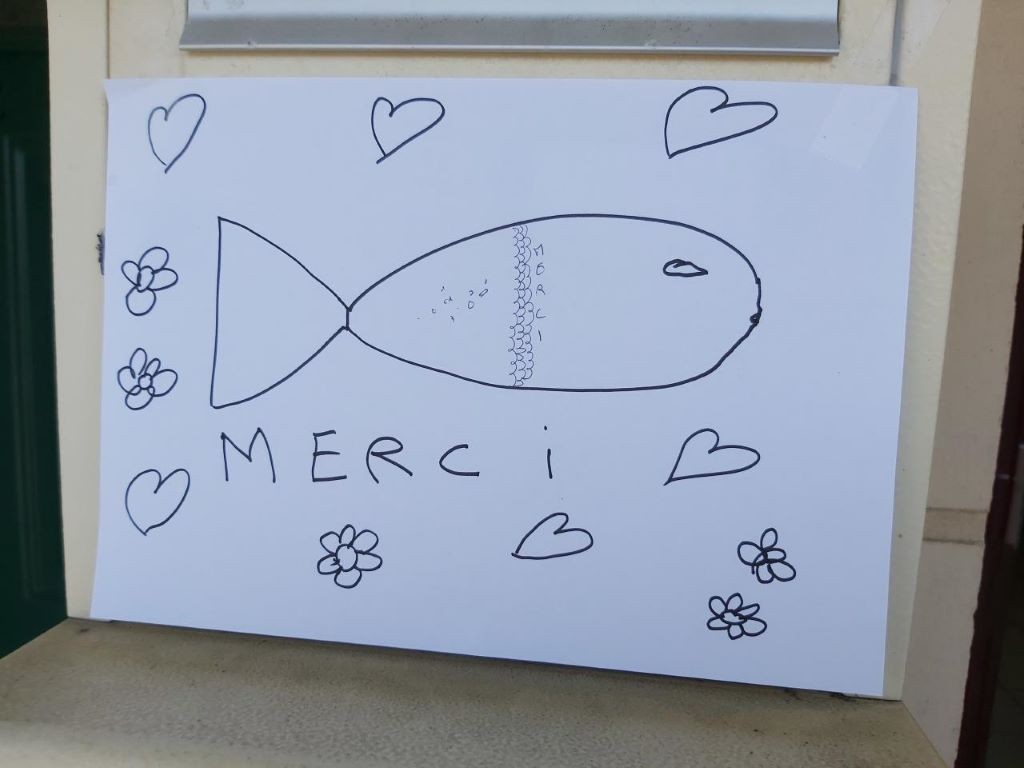 MERCI
MERCi